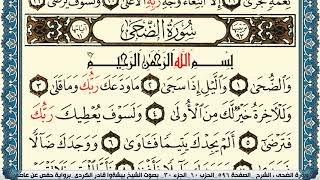 نِعْمَةٍ تُجْزَىٰ ۝ إِلَّا ابْتِغَاءَ وَجْهِ رَبِّهِ الْأَعْلَىٰ ۝ وَلَسَوْفَ يَرْضَىٰ
سُورَةُ الضُّحَىٰ
بِسْمِ اللَّهِ الرَّحْمَٰنِ الرَّحِيمِ
وَالضُّحَىٰ ۝ وَاللَّيْلِ إِذَا سَجَىٰ ۝ مَا وَدَّعَكَ رَبُّكَ وَمَا قَلَىٰ ۝
وَلَلْآخِرَةُ خَيْرٌ لَّكَ مِنَ الْأُولَىٰ ۝ وَلَسَوْفَ يُعْطِيكَ رَبُّكَ
فَتَرْضَىٰ ۝ أَلَمْ يَجِدْكَ يَتِيمًا فَآوَىٰ ۝ وَوَجَدَكَ ضَالًّا
الضحى، الشرح . الصفحة ٥٩٦ الحزب ٦٠ الجزء ٣٠ بصوت الشيخ بيشةوا قادر الكردي برواية حفص عن عاصم